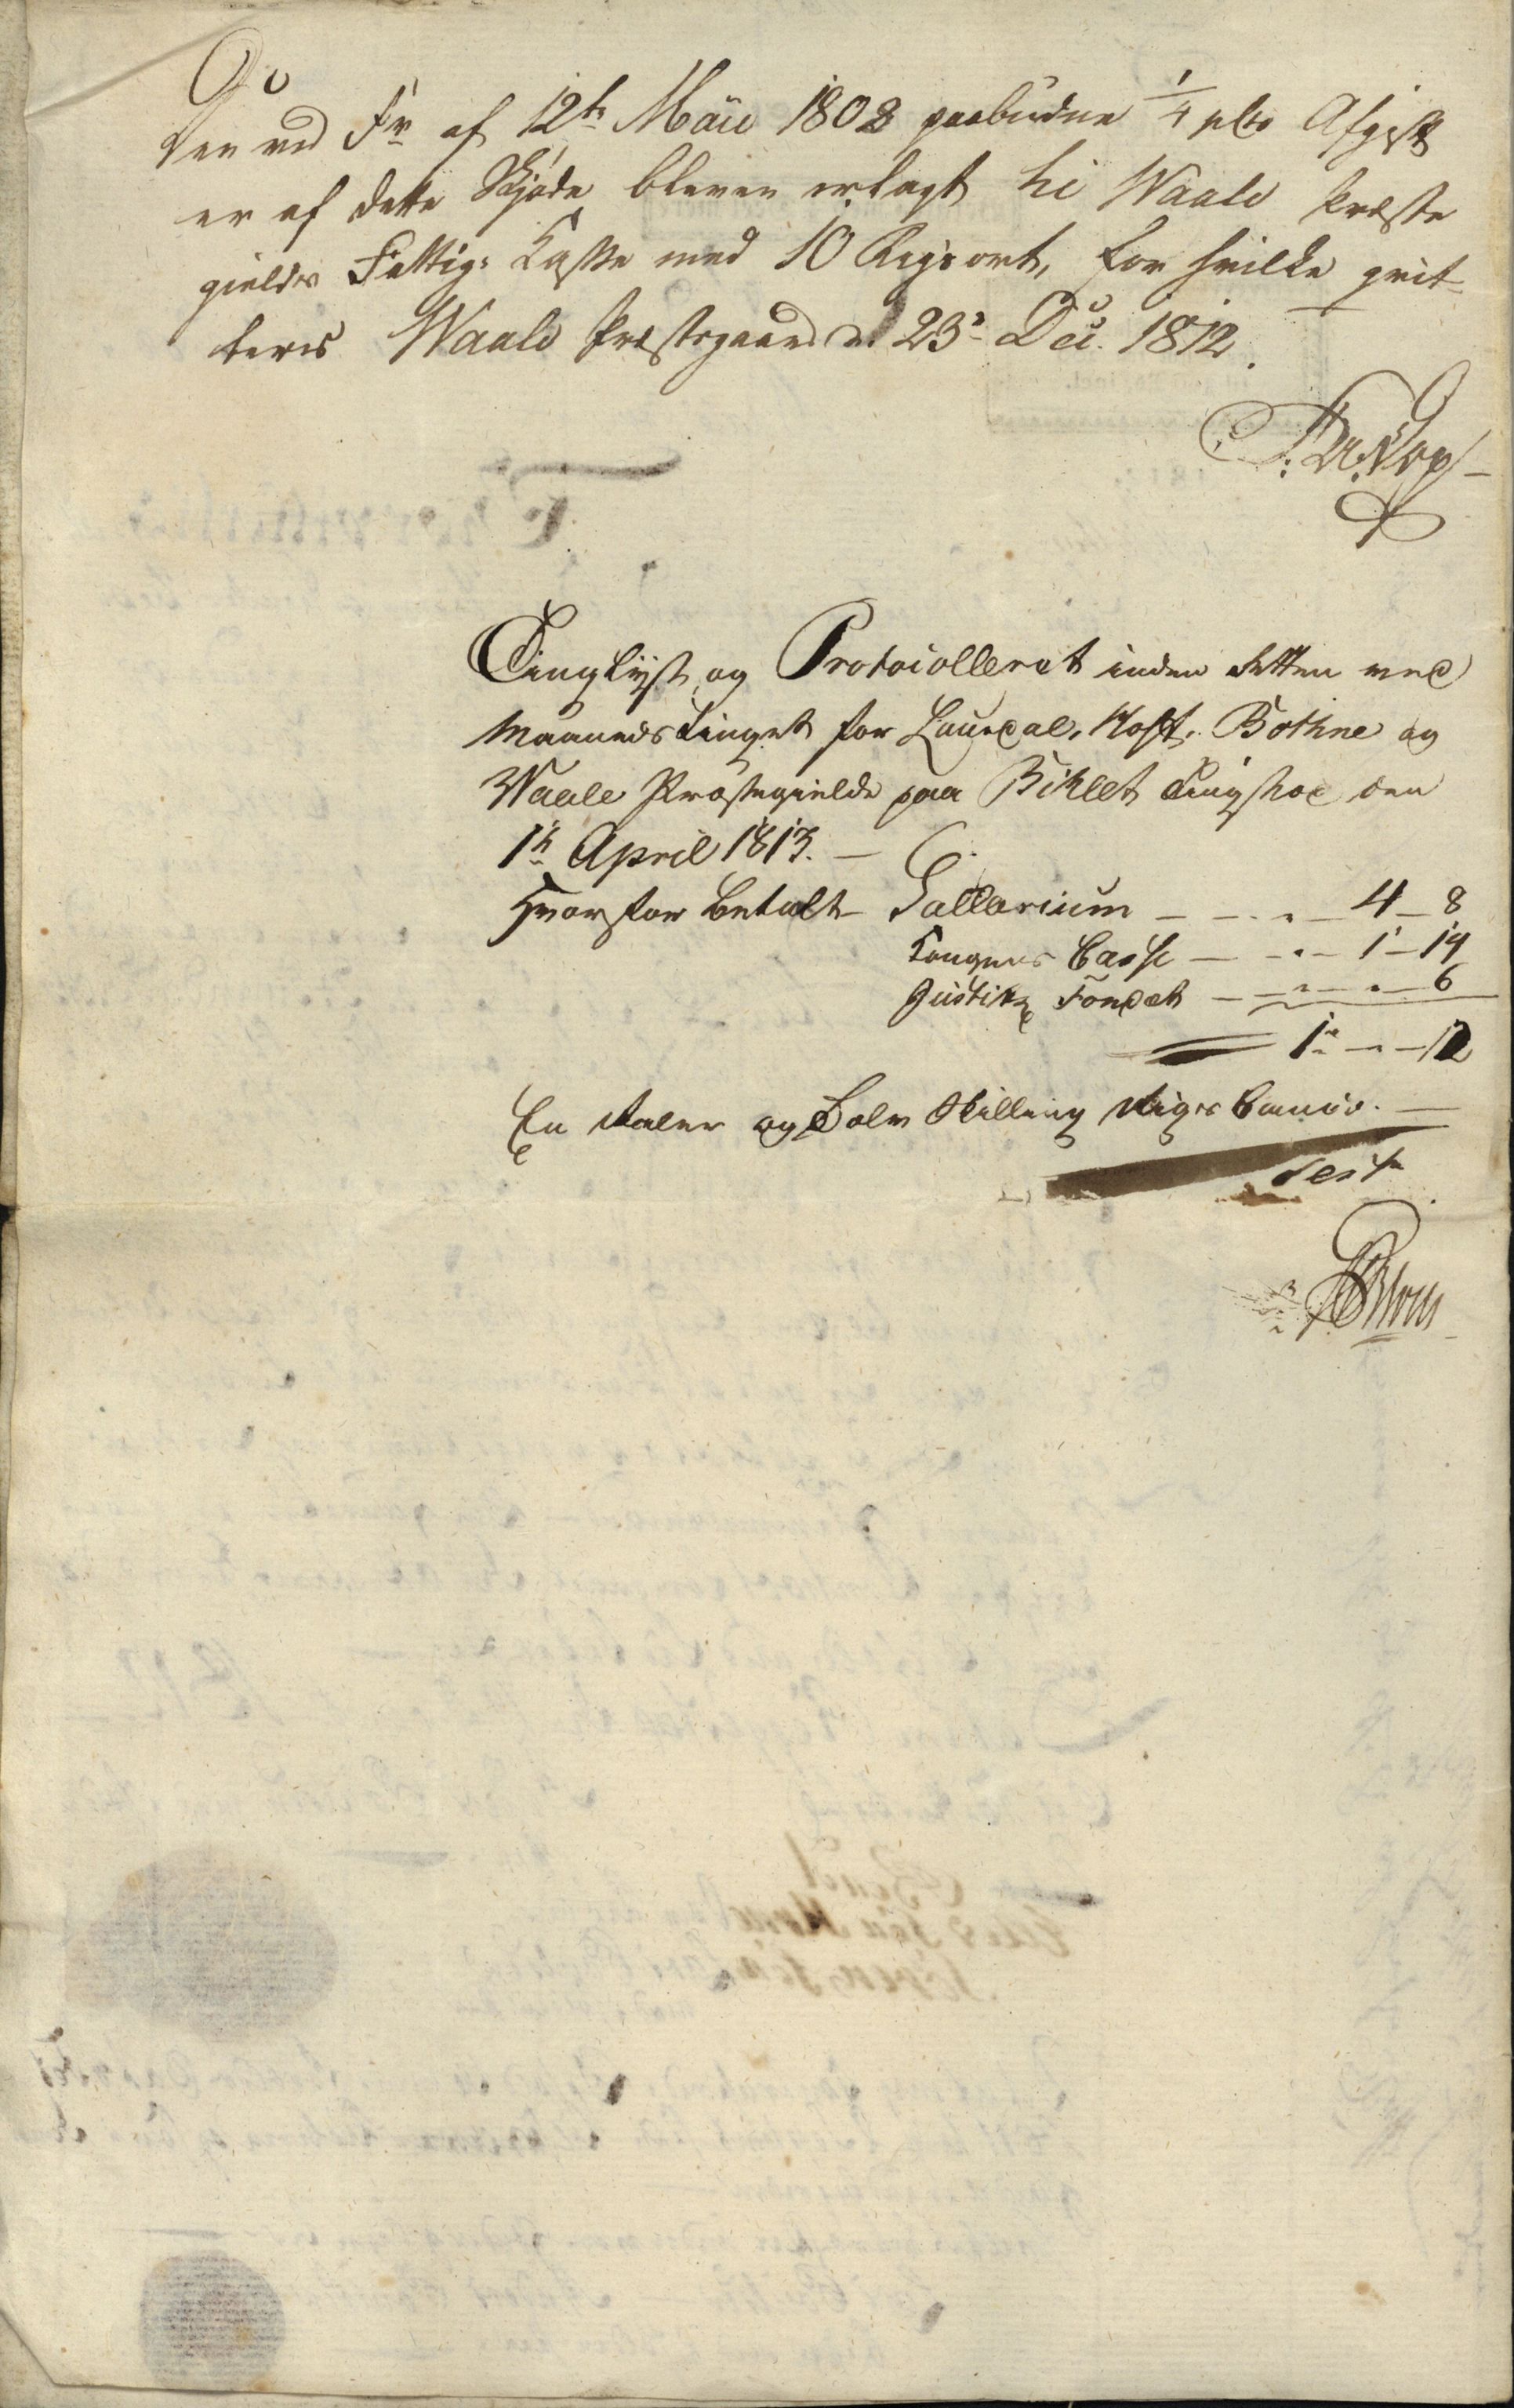 Den ved Fr af 12te Maii 1802 paabudne 1/4 pCto Afgift
er af dette Skjøde bleven erlagt til Waale Præste
gields Fattig: Casse med 10 Rigsort, for hvilke qvit-
teres Waale Præstegaard d. 23de Dec. 1812.
Tinglyst og Protocolleret inden Retten ved
Maaneds Tinget for Laurdal, Hoff, Bothne og
Waale Præstegielde paa Biklet Tingstoe den
1te April 1813. —
Hvorfor betalt Sallarium — — 4 — 8
Kongens Casse — — 1 — 14
Justitz Fondet — — — 6
1 — — 12
En Daler og Tolv Skilling Rigs Banco. —
Test